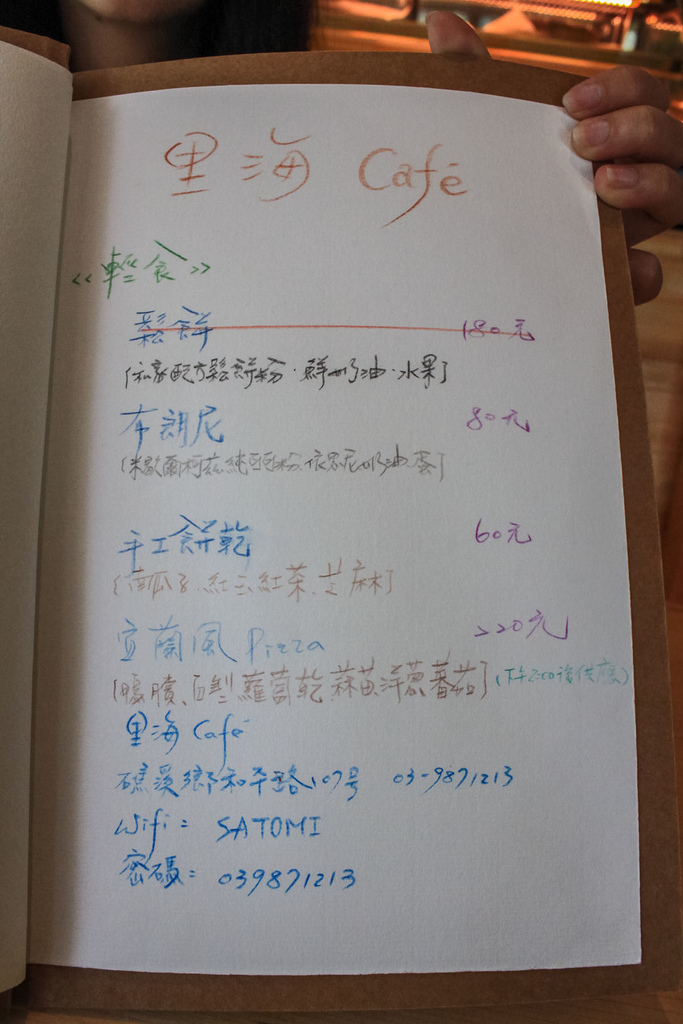 里海 Café
<<輕食>>
鬆餅 180元
(私家配方鬆餅粉.鮮奶油.水果)
布朗尼 80元
奶油.蛋)
手工餅乾 60元
(南瓜子.紅玉紅茶.芝麻)
宜蘭風 Pizza 220元
蘿蔔乾.蒜苗.洋蔥.蕃茄)
里海 Café
礁溪鄉和平路107号 03-9871213
Wifi: SATOMI
密碼: 039871213